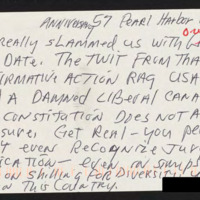 ANNIVERSARY 57 Pearl Harbor
really slammed us with
Date. The TWIT From That
FIRMATIVE ACTION RAG USA
A DAMNED LIBERAL CANA
CONSTITUTION DOES NOT A
sure. Get Real - you pe
t even Recognize
CATION - even on
on shilling for Diversity
on This Country.